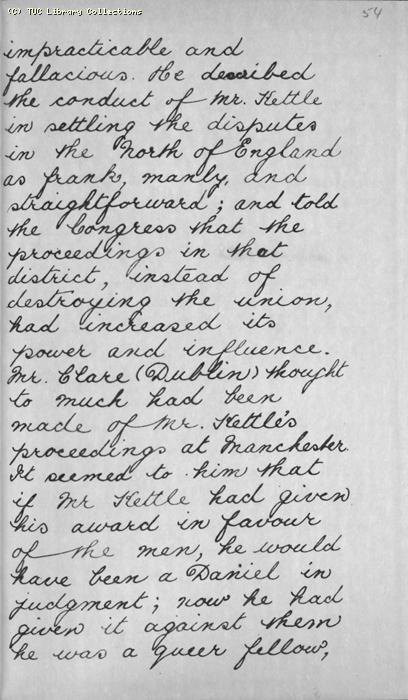 (C) TUC Library Collections
54
impracticable and
fallacious. He described
the conduct of Mr. Kettle
in settling the disputes
in the North of England
as frank, manly, and
straightforward; and told
the Congress that the
proceedings in that
district, instead of
destroying the union,
had increased its
power and influence.
Mr. Clare (Dublin) thought
to much had been
made of Mr. Kettle's
proceedings at Manchester.
It seemed to him that
if Mr Kettle had given
his award in favour
of the men, he would
have been a Daniel in
judgment; now he had
given it against them
he was a queer fellow,